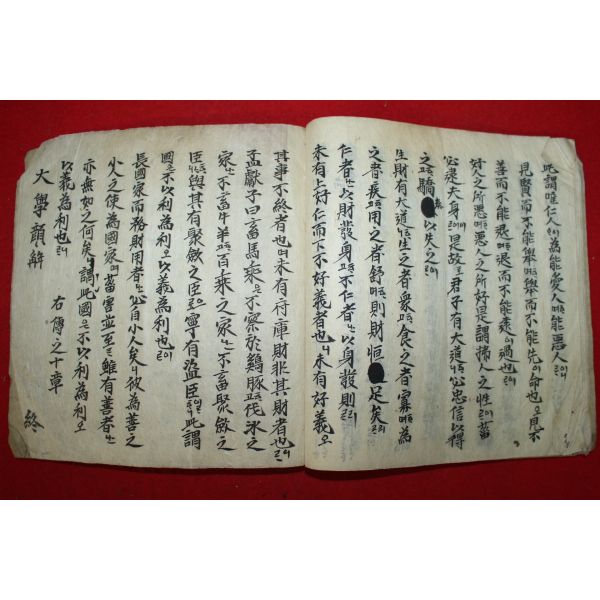 此謂唯仁人이아為能愛人며能惡人이니라
見賢而不能舉며舉而不能先이命也오見不
善而不能退며退而不能遠이過也니라
好人之所惡며惡人之所好是謂拂人之性이라菑
必逮夫身이니라是故로君子有大道니必忠信以得
之고驕泰以失之니라
生財有大道니生之者衆고食之者寡며為
之者疾고用之者舒면則財恒足矣리라
仁者는以財發身고不仁者는以身發財니라
未有上好仁而下不好義者也니未有好義오
其事不終者也며未有府庫財非其財者也니라
孟獻子曰畜馬乘은不察於鷄豚고伐氷之
家는不畜牛羊고百乘之家는不畜聚斂之
臣니與其有聚斂之臣으론寧有盜臣이라니此謂
國은不以利為利오以義為利也니라
長國家而務財用者는必自小人矣니彼為善之
小人之使為國家면菑害並至라雖有善者나
亦無如之何矣니此謂國은不以利為利오
以義為利也니라
右傳之十章
大學諺解 終